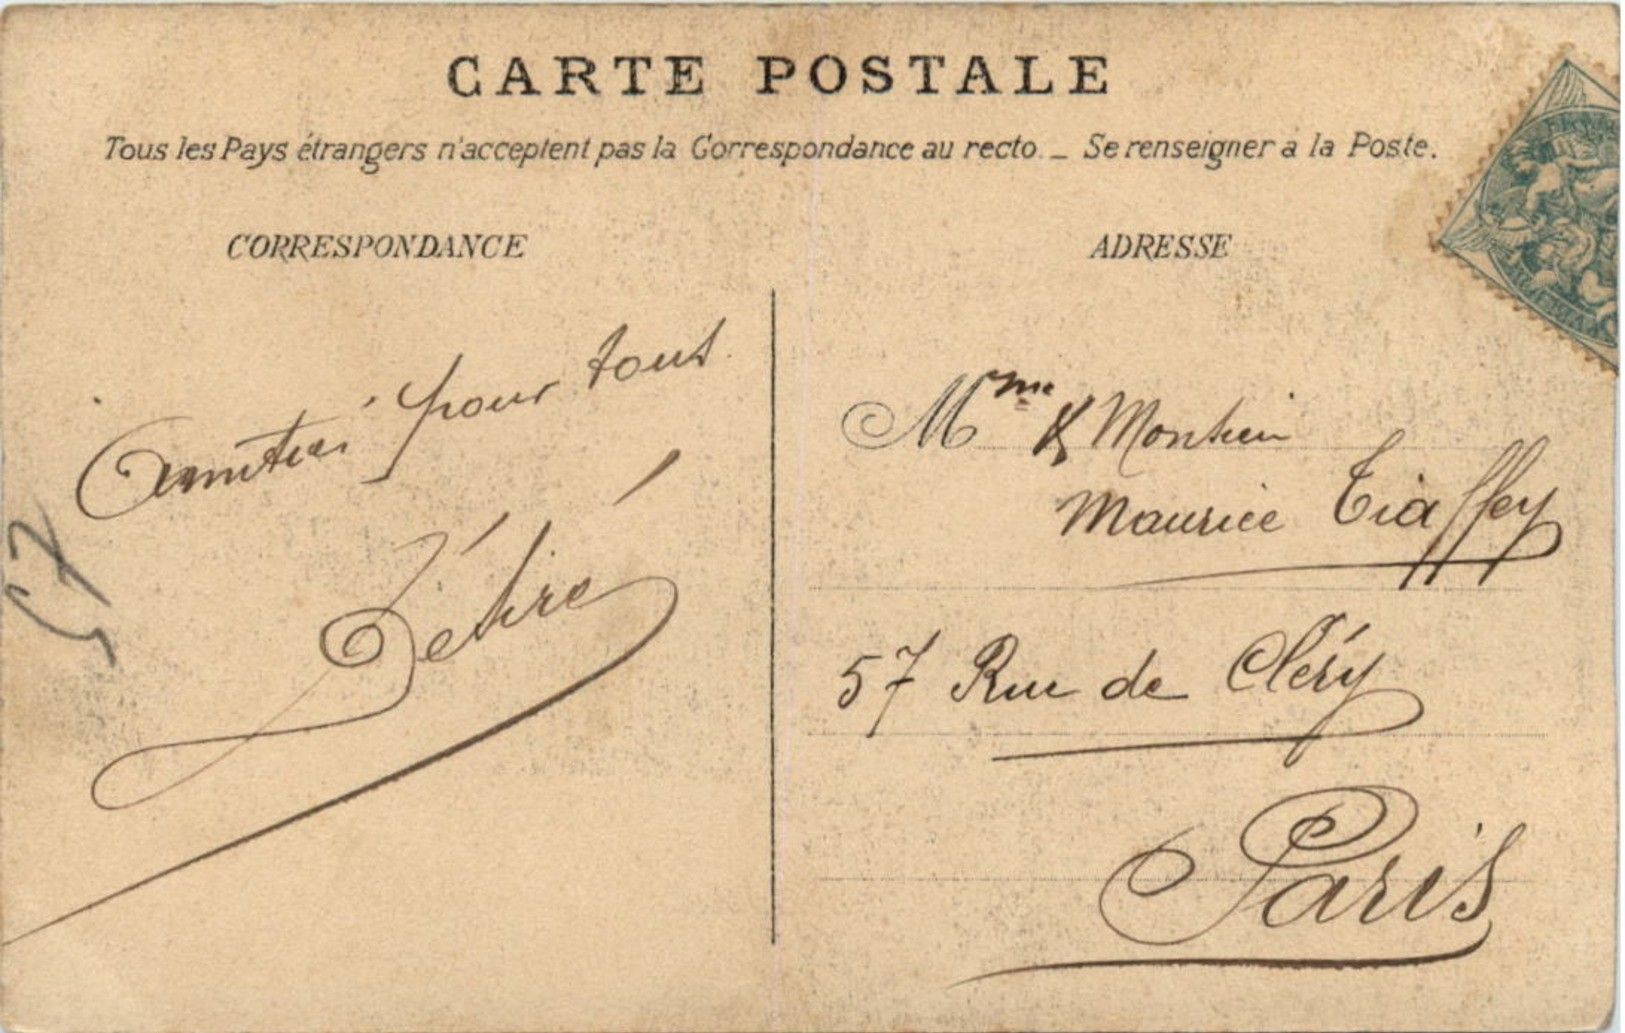 CARTE POSTALE
Tous les Pays étrangers n'acceptent pas la Correspondance au recto. _ Se renseigner a la Poste.
CORRESPONDANCE
Amitié pour tous
57
ADRESSE
Mme & Monsieur
Maurice Tiaffey
57 Rue de Cléry
Paris